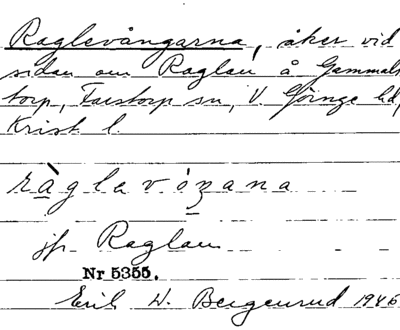 Raglevångarna, åker vid
sidan om Raglan å Gammals-
torp, Farstorp sn, V. Göinge hd,
Krist. l.
ràglavóŋana
jfr Raglan
Nr 5355.
Erik W. Bergenrud 1946